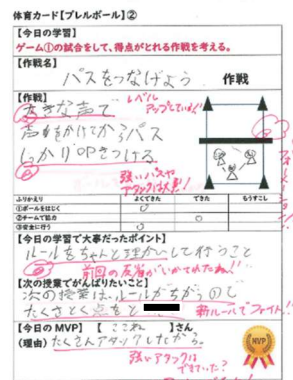 体育カード【プレルボール】②
【今日の学習】
ゲーム①の試合をして、得点がとれる作戦を考える。
【作戦名】
パスをつなげよう 作戦
【作戦】
レベルアップしていますね!
大きな声で
声をかけてからパス
しっかりゆきつける
強いパスや
アタックは大事!
ふりかえり よくできた できた もうすこし
①ボールをはじく ○
②チームで協力 ○
③安全に行う ○
【今日の学習で大事だったポイント】
ルールをちゃんと理かいして行うこと
前回の反省がいかされたね!!
【次の授業でがんばりたいこと】
次の授業は、ルールがちがうので
たくさとく点をと
新ルールでファイト!!
【今日のMVP】【 ここね 】さん
(理由) たくさんアタックしたから。
MVP
強いアタックは
できていた?